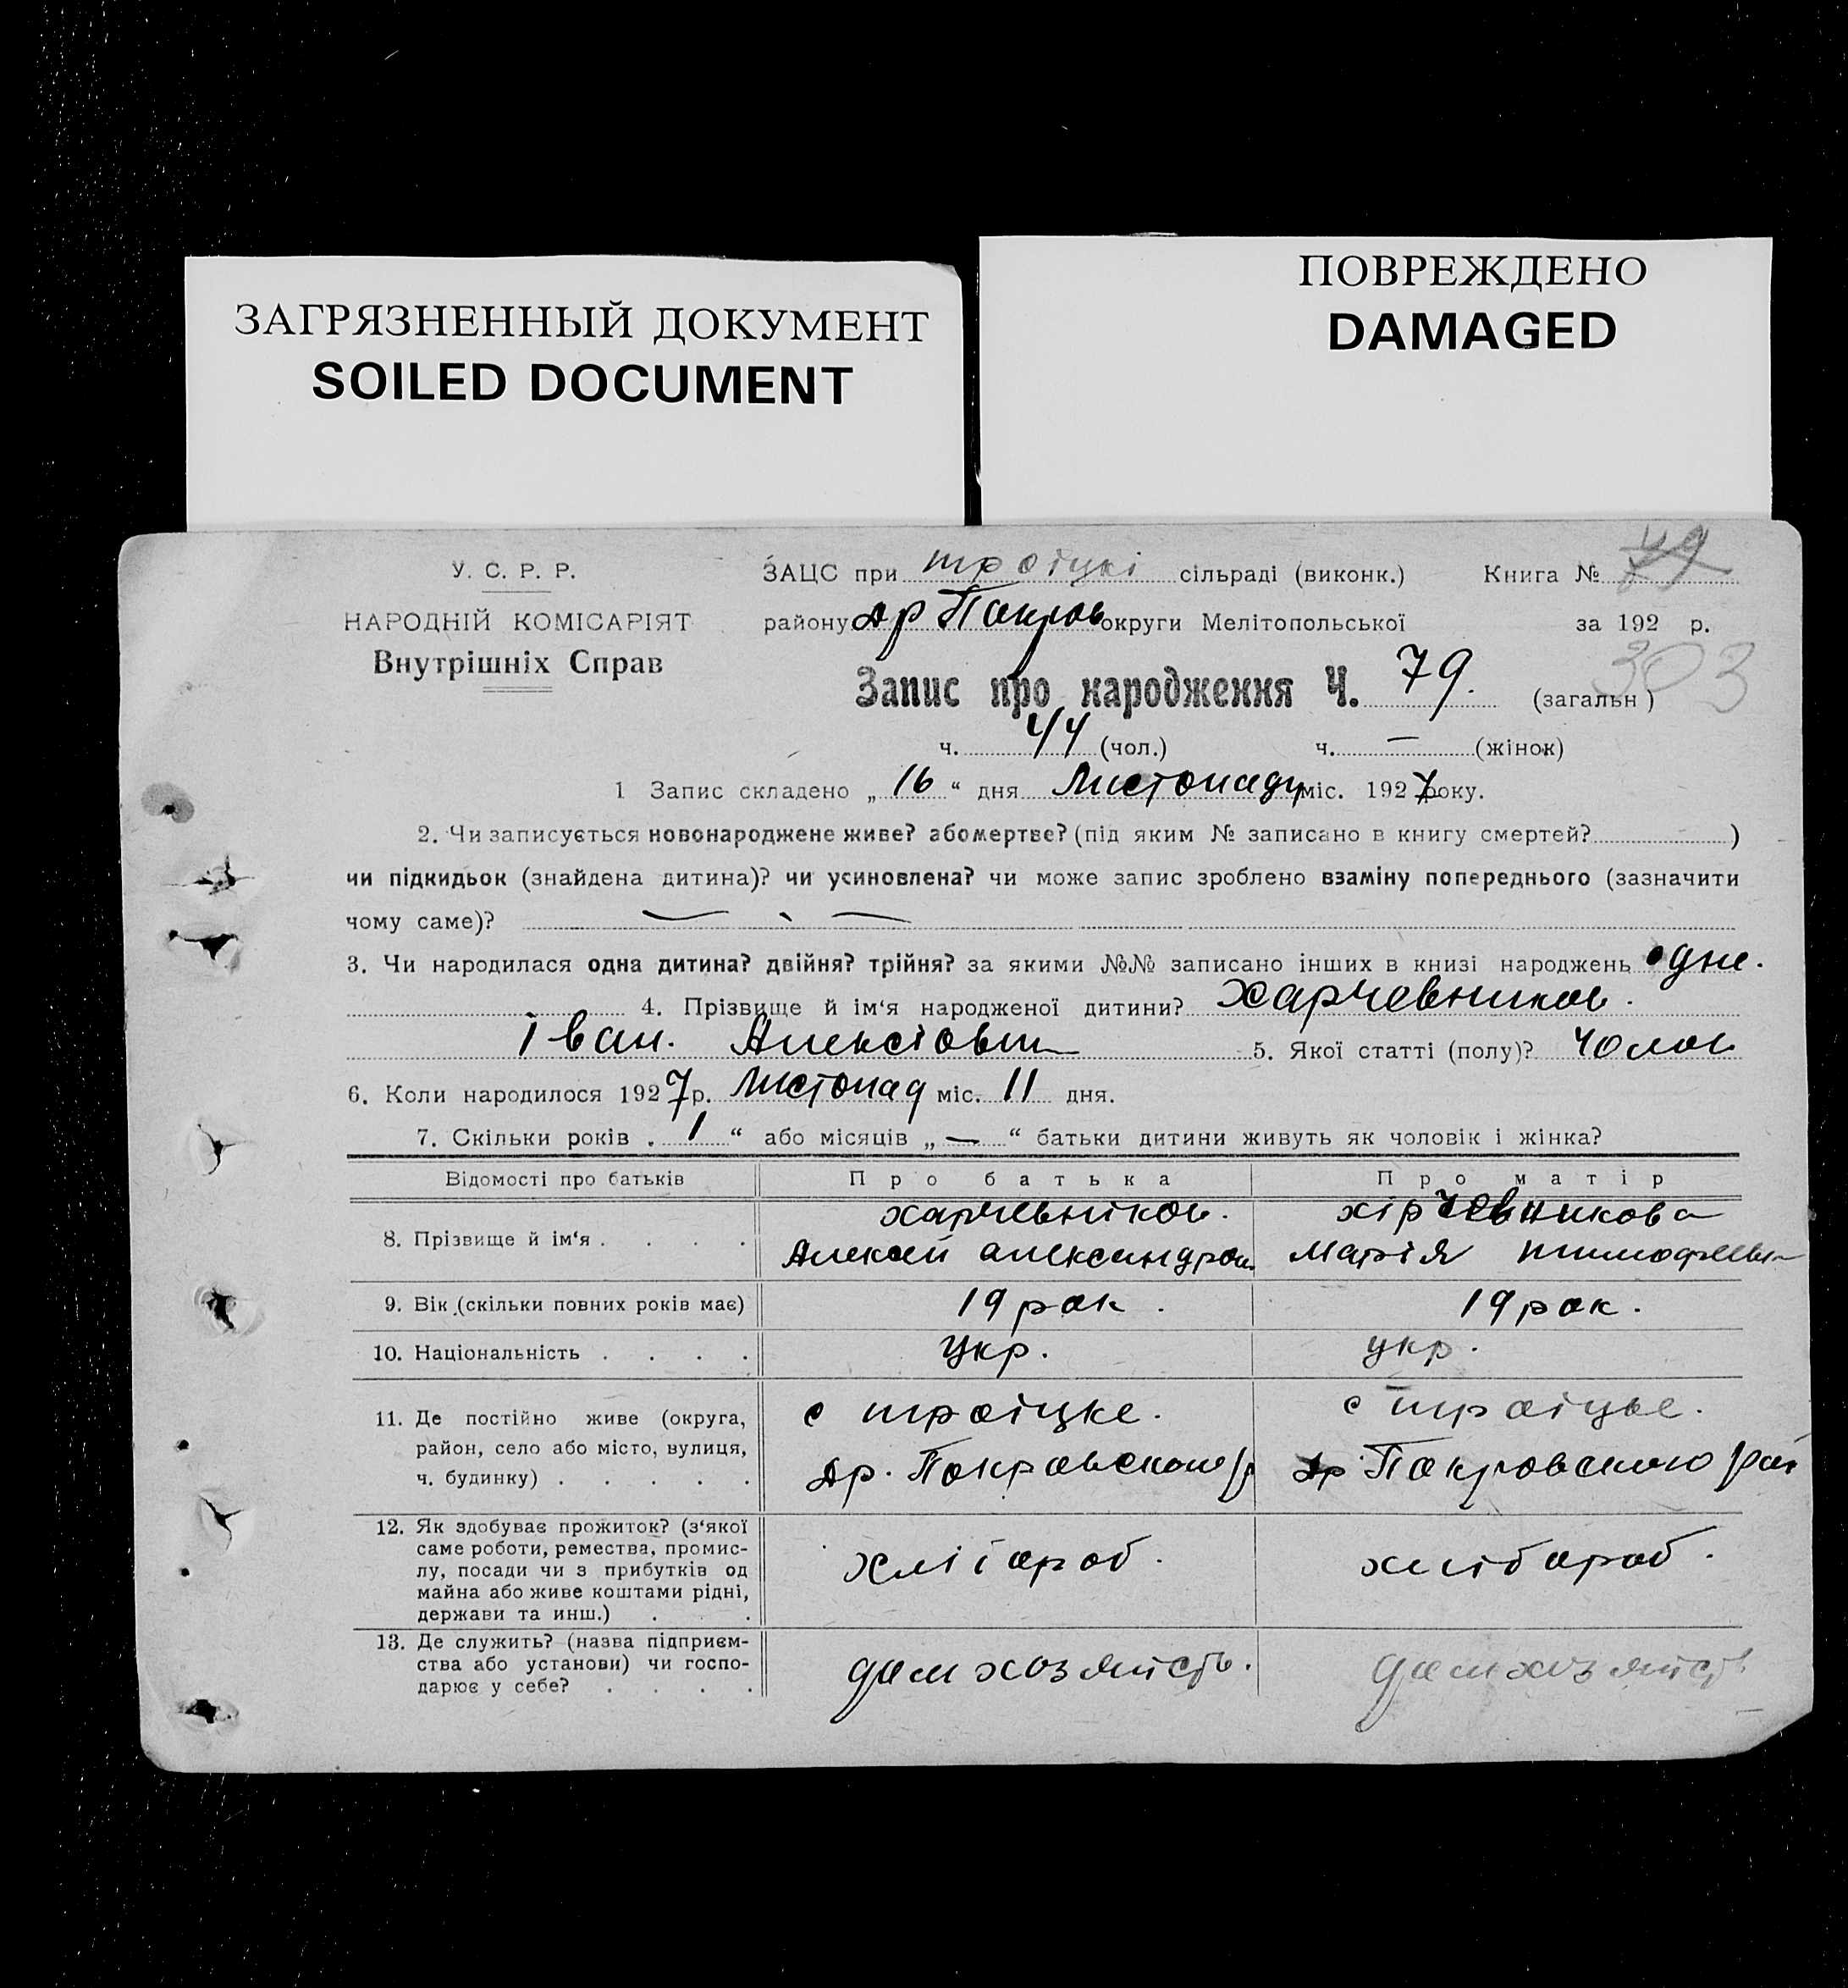 ЗАГРЯЗНЕННЫЙ ДОКУМЕНТ
SOILED DOCUMENT
ПОВРЕЖДЕНО
DAMAGED
У. С. Р. Р.
НАРОДНІЙ КОМІСАРІЯТ
Внутрішніх Справ
ЗАЦС при троіцкі сільраді (виконк.) Книга №
району Др Покров округи Мелітопольської за 192 р.
303
Запис про народження Ч. 79. (загальн)
ч. 44 (чол.) ч. — (жінок)
1 Запис складено „16“ дня Листопаду міс. 1927 року.
2. Чи записується новонароджене живе? або мертве? (під яким № записано в книгу смертей? )
чи підкидьок (знайдена дитина)? чи усиновлена? чи може запис зроблено взаміну попереднього (зазначити
чому саме)? — —
3. Чи народилася одна дитина? двійня? трійня? за якими №№ записано інших в книзі народжень одне.
4. Прізвище й ім‘я народженої дитини? Харчевников.
Іван. Алексіович 5. Якої статті (полу)? чолов
6. Коли народилося 1927 р. Листопад міс. 11 дня.
7. Скільки років „1“ або місяців „—“ батьки дитини живуть як чоловік і жінка?
Відомості про батьків Про батька Про матір
8. Прізвище й ім‘я . . . .
харчевніков.
Алексей александров.
хірчевникова
Марія тимофеевн
9. Вік (скільки повних років має) 19 рок. 19 рок.
10. Національність . . . . Укр. укр.
11. Де постійно живе (округа,
район, село або місто, вулиця,
ч. будинку) . . . . .
с троіцке.
Др. Покровского р
с троіцке.
Др Покровского рай
12. Як здобуває прожиток? (з‘якої
саме роботи, ремества, промис-
лу, посади чи з прибутків од
майна або живе коштами рідні,
держави та инш.) . . .
хліборob.
хлібороб.
13. Де служить? (назва підприєм-
ства або установи) чи госпо-
дарює у себе? . . . .
дом хозяйств.
дом хозяйств